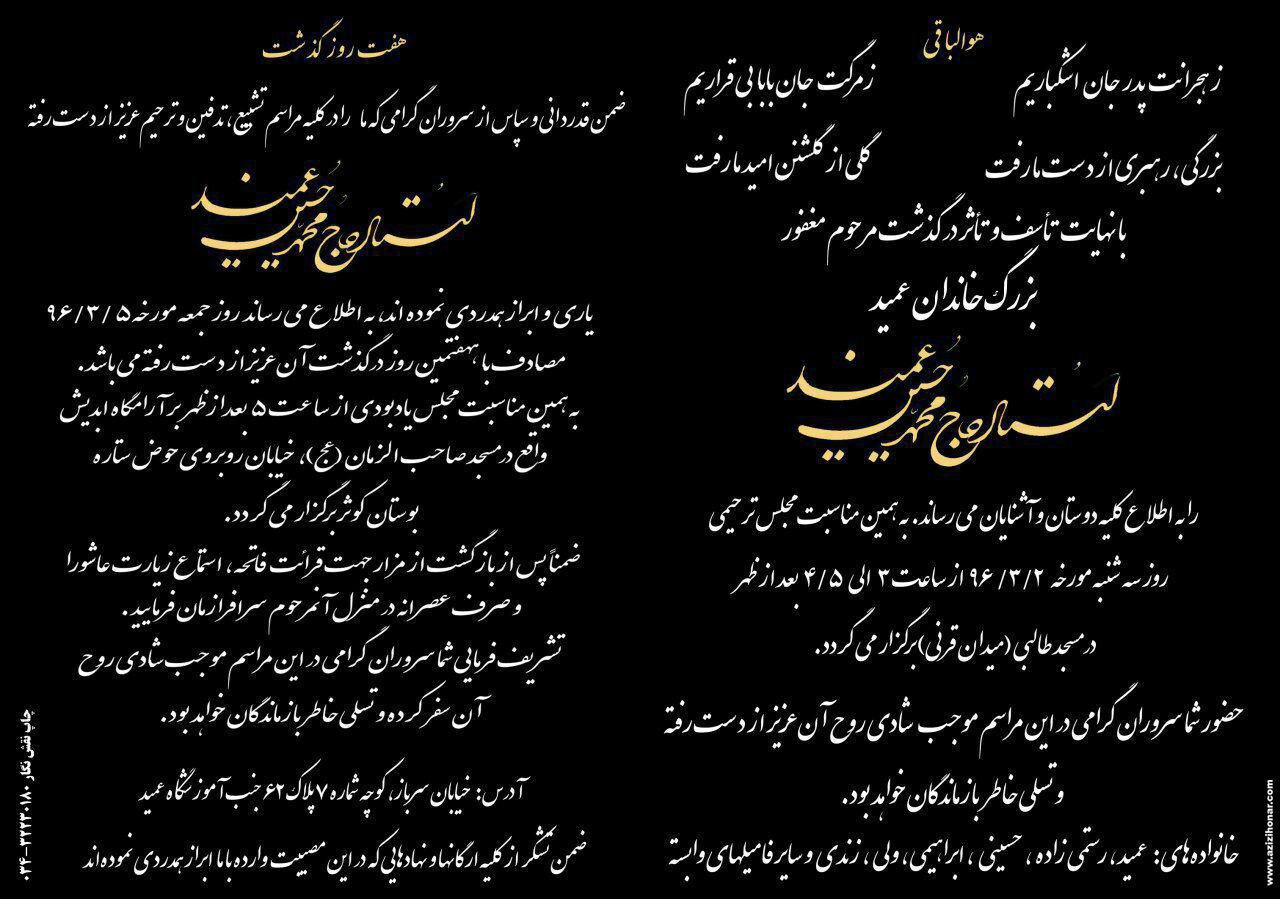 هوالباقی
ز هجرانت پدر جان اشکباریم زمرگت جان بابا بی قراریم
بزرگی، رهبری از دست ما رفت گلی از گلشن امید ما رفت
با نهایت تأسف و تأثر درگذشت مرحوم مغفور
بزرگ خاندان عمید
استاد حاج محمد حسین عمید
را به اطلاع کلیه دوستان و آشنایان می رساند. به همین مناسبت مجلس ترحیمی
روز سه شنبه مورخه ۹۶/۳/۲ از ساعت ۳ الی ۴/۵ بعد از ظهر
در مسجد طالبی (میدان قرنی) برگزار می گردد.
حضور شما سروران گرامی در این مراسم موجب شادی روح آن عزیز از دست رفته
و تسلی خاطر بازماندگان خواهد بود.
خانواده های: عمید، رستمی زاده، حسینی، ابراهیمی، ولی، زندی و سایر فامیلهای وابسته
www.azizihonar.com
هفت روز گذشت
ضمن قدردانی و سپاس از سروران گرامی که ما را در کلیه مراسم تشییع، تدفین و ترحیم عزیز از دست رفته
استاد حاج محمد حسین عمید
یاری و ابراز همدردی نموده اند، به اطلاع می رساند روز جمعه مورخه ۹۶/۳/۵
مصادف با هفتمین روز درگذشت آن عزیز از دست رفته می باشد.
به همین مناسبت مجلس یادبودی از ساعت ۵ بعد از ظهر بر آرامگاه ابدیش
واقع در مسجد صاحب الزمان (عج)، خیابان روبروی حوض ستاره
بوستان کوثر برگزار می گردد.
ضمناً پس از بازگشت از مزار جهت قرائت فاتحه، استماع زیارت عاشورا
و صرف عصرانه در منزل آنمرحوم سرافرازمان فرمایید.
تشریف فرمایی شما سروران گرامی در این مراسم موجب شادی روح
آن سفر کرده و تسلی خاطر بازماندگان خواهد بود.
آدرس: خیابان سرباز، کوچه شماره ۷ پلاک ۶۲ جنب آموزشگاه عمید
ضمن تشکر از کلیه ارگانها و نهادهایی که در این مصیبت وارده با ما ابراز همدردی نموده اند
چاپ نقش نگار ۳۲۲۳۰۱۸۰-۰۳۴